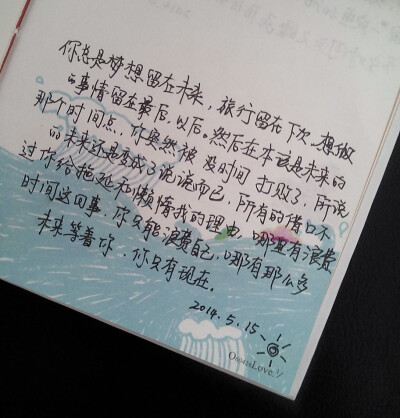 你总是梦想留在未来，旅行留在下次，想做
的事情留在最后，以后。然后在本该是未来的
那个时间点，你突然被没时间打败了，所说
的未来还是变成了说说而已，所有的借口不
过你给拖延和懒惰找的理由，哪里有浪费
时间这回事，你只能浪费自己，哪有那么多
未来等着你，你只有现在。
2014.5.15